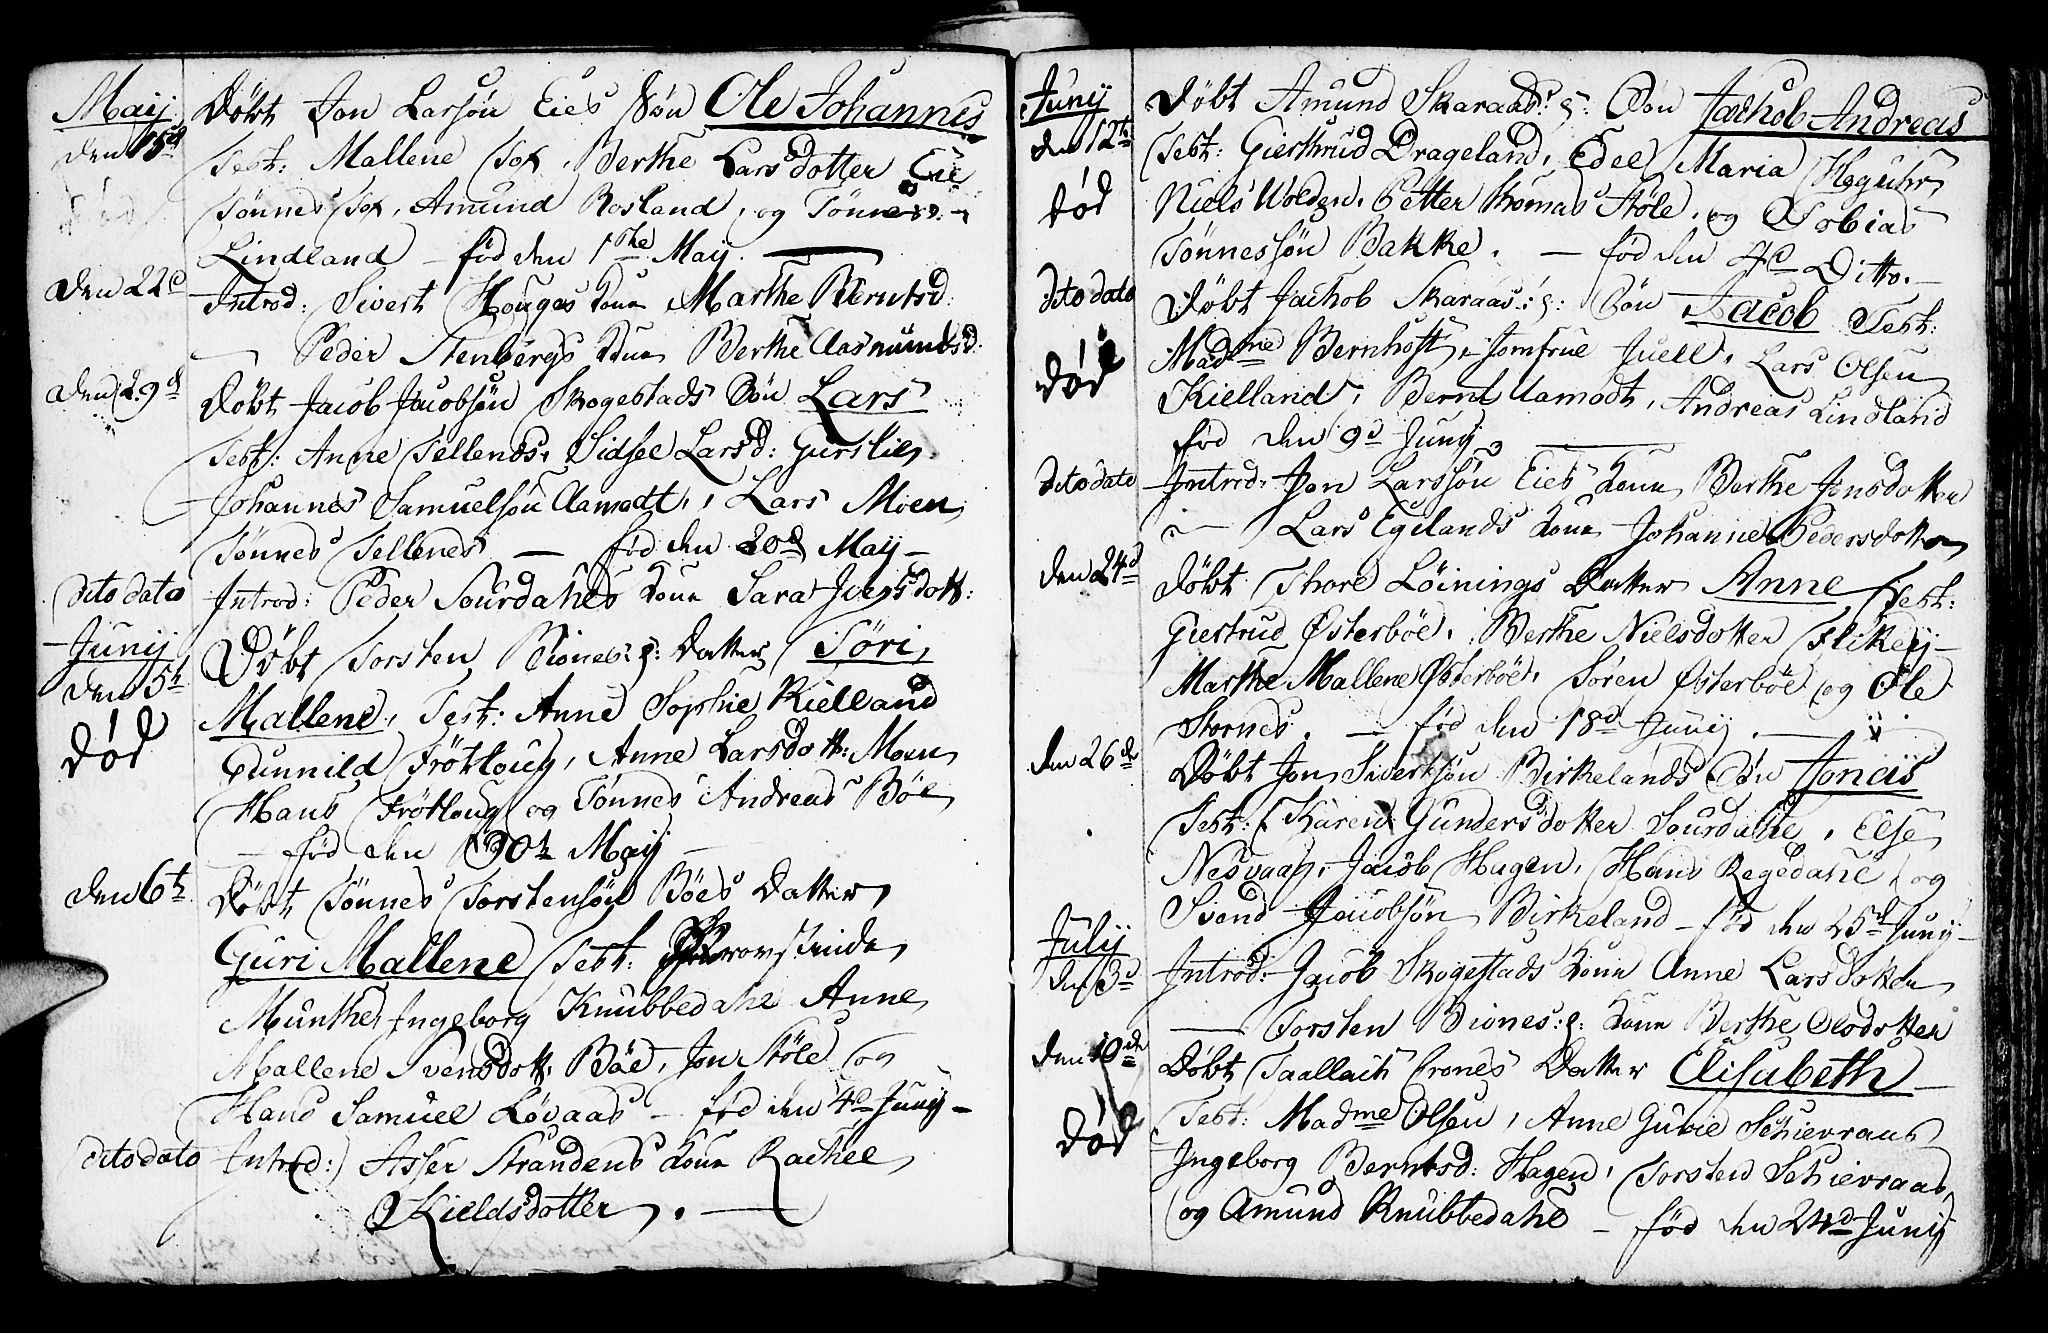 Maij Döbt Jon Larssön Eies Sön Ole Johannes
den 15d Test: Mallene Sox, Berthe Larsdotter Eie
Tönnes Sox, Amund Rosland, og Tönnes
Lindland – föd den 1the Maij.
den 22d Introd: Sivert Houges Kone Marthe Berntsd:
— Peder Stenbergs Kone Berthe Aasmundsd:
den 29d Döbt Jacob Jacobsön Skogestads Sön Lars
Test: Anne Tellenes, Sidsel Larsd: Gurslien
Johannes Samuelsön Aamodt, Lars Moen
Tönnes Tellenes — föd den 20d Maij –
dito dato Introd: Peder Sourdahls Kone Sara Jonsdott:
Junij Döbt Torsten Biones: g: Datter Töri
den 5t Mallene, Test: Anne Sophie Kielland
död Gunnild Frötloug, Anne Larsdott: Moen
Hans Frötloug og Tönnes Andreas Böe
– föd den 30t Maij –
den 6t Döbt Tönnes Torstensön Böes Datter
Guri Mallene Test: Provstinde
Munthe, Ingeborg Knubbedahl Anne
Mallene Svensdott. Böe, Jon Stöle og
Hans Samuel Lövaas – föd den 4d Junij –
dito dato Introd: Asser Strandens Kone Rachel
Kieldsdotter. —
Junij Döbt Amund Skaraas: g: Sön Jachob Andreas
den 12t Test: Gierthrud Drageland, Edel Maria Heguhr
död Niels Wolden, Petter Thomas Stöle, og Tobias
Tönnessön Bakke. – föd den 4d Ditto. –
dito dato Döbt Jachob Skaraas: g: Sön Jacob Test:
död Madme Bernhoft, Jomfrue Juell, Lars Olsen
Kielland, Bernt Aamodt, Andreas Lindland
föd den 9d Junij
dito dato Introd: Jon Larssön Eies Kone Berthe Jonsdotter
— Lars Egelands Kone Johanne Pedersdotter
den 24d Döbt Thore Löinings Datter Anne Test:
Giertrud Österböe, Berthe Nielsdotter Flikeij –
Marthe Mallene Österböe, Sören Österböe og Ole
Stornes. – föd den 18d Junij. –
den 26de Döbt Jon Sivertsön Birkelands Sön Jonas
Test: Karen Gundersdotter Sourdahl, Else
Nesvaag, Jacob Hagen, Hans Regedahl, og
Svend Jacobsön Birkeland – föd den 25d Junij –
Julij
den 3d Introd: Jacob Skogestads Kone Anne Larsdotter
— Torsten Biones: g: Kone Berthe Olsdotter
den 10de Döbt Taallach Crones Datter Elisabeth –
död Test: Madme Olsen, Anne Gurie Schievraas
Ingeborg Berntsd: Hagen, Torsten Schievraas
og Amund Knubbedahl – föd den 24d Junij